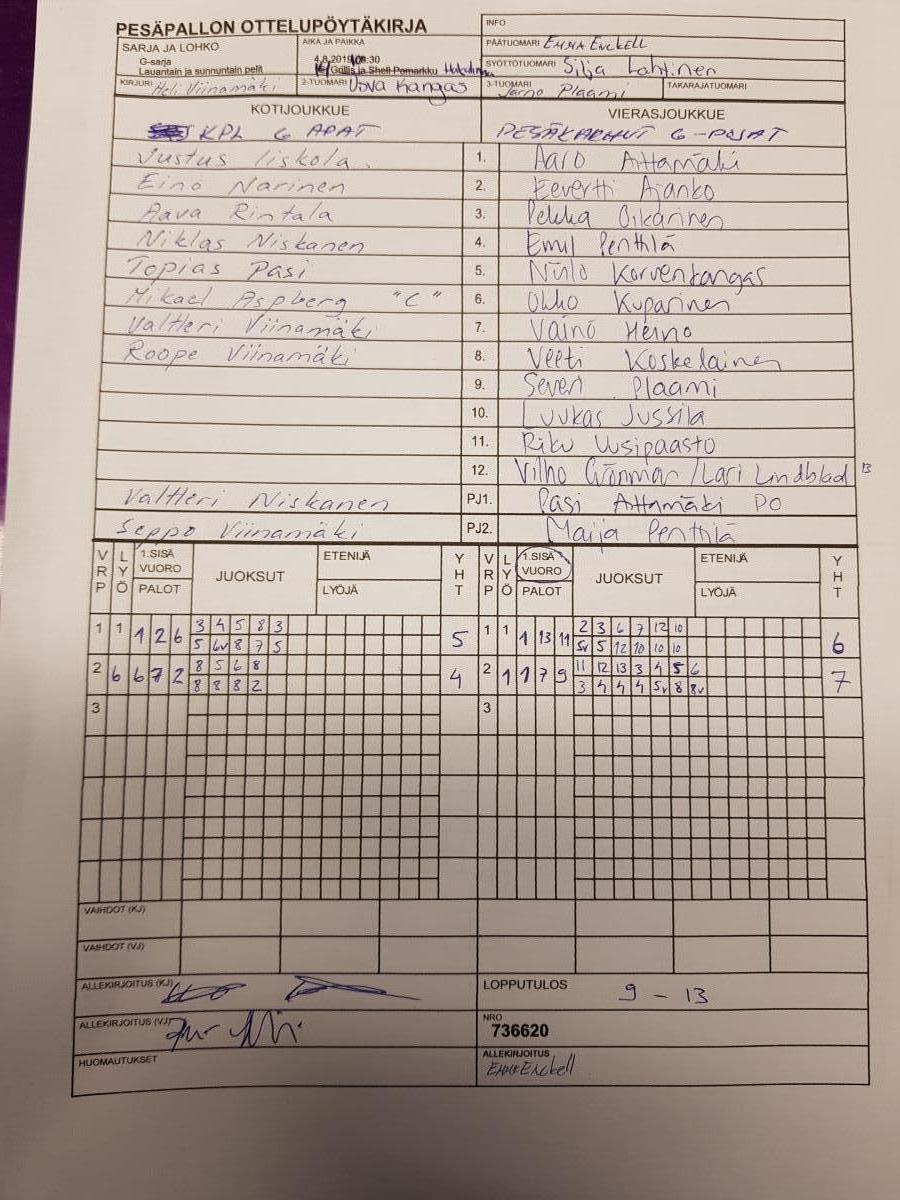 PESÄPALLON OTTELUPÖYTÄKIRJA
INFO
SARJA JA LOHKO
G-sarja
Lauantain ja sunnuntain pelit
AIKA JA PAIKKA
4.8.2019 08:30
Grillis ja Shell Pomarkku
PÄÄTUOMARI EMMA Enckell
SYÖTTÖTUOMARI Silja Lahtinen
KIRJURI Heli Viinamäki
2-TUOMARI Usva Kangas
3-TUOMARI Jarno Plaami
TAKARAJATUOMARI
KOTIJOUKKUE
KPL G APAT
VIERASJOUKKUE
PESÄKARHUT G-POJAT
Justus Iiskola 1. Aaro Aittamäki
Eino Narinen 2. Eevertti Ajanko
Aava Rintala 3. Pekka Oikarinen
Niklas Niskanen 4. Emil Penttilä
Topias Pasi 5. Niilo Korventangas
Mikael Aspberg "C" 6. Okko Kuparinen
Valtteri Viinamäki 7. Väinö Heino
Roope Viinamäki 8. Veeti Koskelainen
9. Severi Plaami
10. Luukas Jussila
11. Riku Uusipaasto
12. Vilho Grönmar /Lari Lindblad 13
Valtteri Niskanen PJ1. Pasi Aittamäki PO
Seppo Viinamäki PJ2. Maija Penttilä
VRP LYÖ 1.SISÄ VUORO PALOT JUOKSUT ETENIJÄ LYÖJÄ YHT VRP LYÖ 1.SISÄ VUORO PALOT JUOKSUT ETENIJÄ LYÖJÄ YHT
1 1 1 2 6 3 4 5 8 3 5 1 1 1 13 11 2 3 6 7 12 10 6
5 6v 8 7 5 5v 5 12 10 10 10
2 6 6 7 2 8 5 6 8 4 2 1 1 7 9 11 12 13 3 4 5 6 7
8 8 8 2 3 4 4 4 5v 8 8v
3 3
VAIHDOT (KJ)
VAIHDOT (VJ)
ALLEKIRJOITUS (KJ)
LOPPUTULOS 9 - 13
ALLEKIRJOITUS (VJ)
NRO
736620
HUOMAUTUKSET
ALLEKIRJOITUS
Emma Enckell